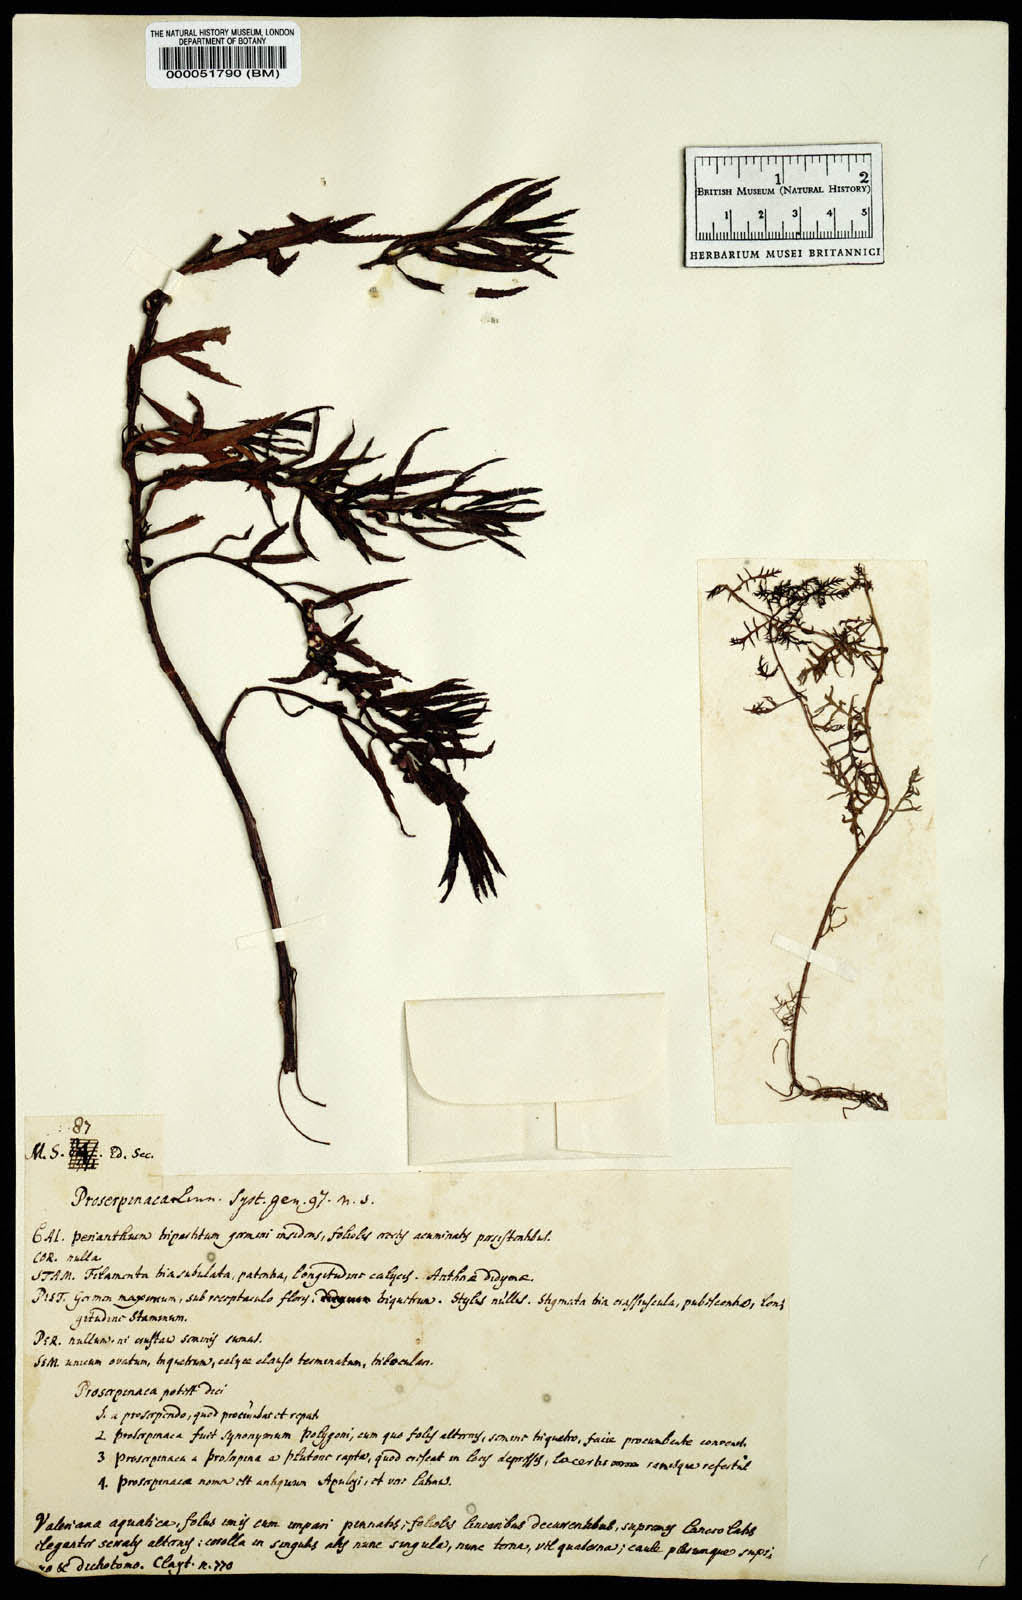 THE NATURAL HISTORY MUSEUM, LONDON
DEPARTMENT OF BOTANY
000051790 (BM)
1 2
BRITISH MUSEUM (NATURAL HISTORY)
1 2 3 4 5
HERBARIUM MUSEI BRITANNICI
87
M. S. Ed. Sec.
Proserpinaca Linn. Syst. gen. 97. n. s.
CAL. perianthium tripartitum germini insidens, foliolis erectis acuminatis persistentibus.
COR. nulla
STAM. Filamenta tria subulata, patentia, longitudine calycis. Antheræ didymæ.
PIST. Germen maximum, sub receptaculo floris, triquetrum. Stylus nullus. Stigmata tria crassiuscula, pubescentia, lon
gitudine Staminum.
PER. nullum, ni crustam seminis sumas.
SEM. unicum ovatum, triquetrum, calyce clauso terminatum, triloculare.
Proserpinaca potest dici
1. a proserpendo, quod procumbat et repat.
2 proserpinaca fuit synonymum Polygoni, cum quo foliis alternis, semine triquetro, facie procumbente convenit.
3 proserpinaca a Proserpina a plutone rapta, quod crescat in locis depressis, lacertis ranisque refertis
4. proserpinaca nomen est antiquum Apuleji, et vere latinum.
Valeriana aquatica, foliis imis cum impari pinnatis; foliolis linearibus decurrentibus, supremis lanceolatis
eleganter serratis alternis; corolla in singulis alis nunc singula, nunc terna, vel quaterna; caule plerumque supi
no & dichotomo. Clayt. n. 770